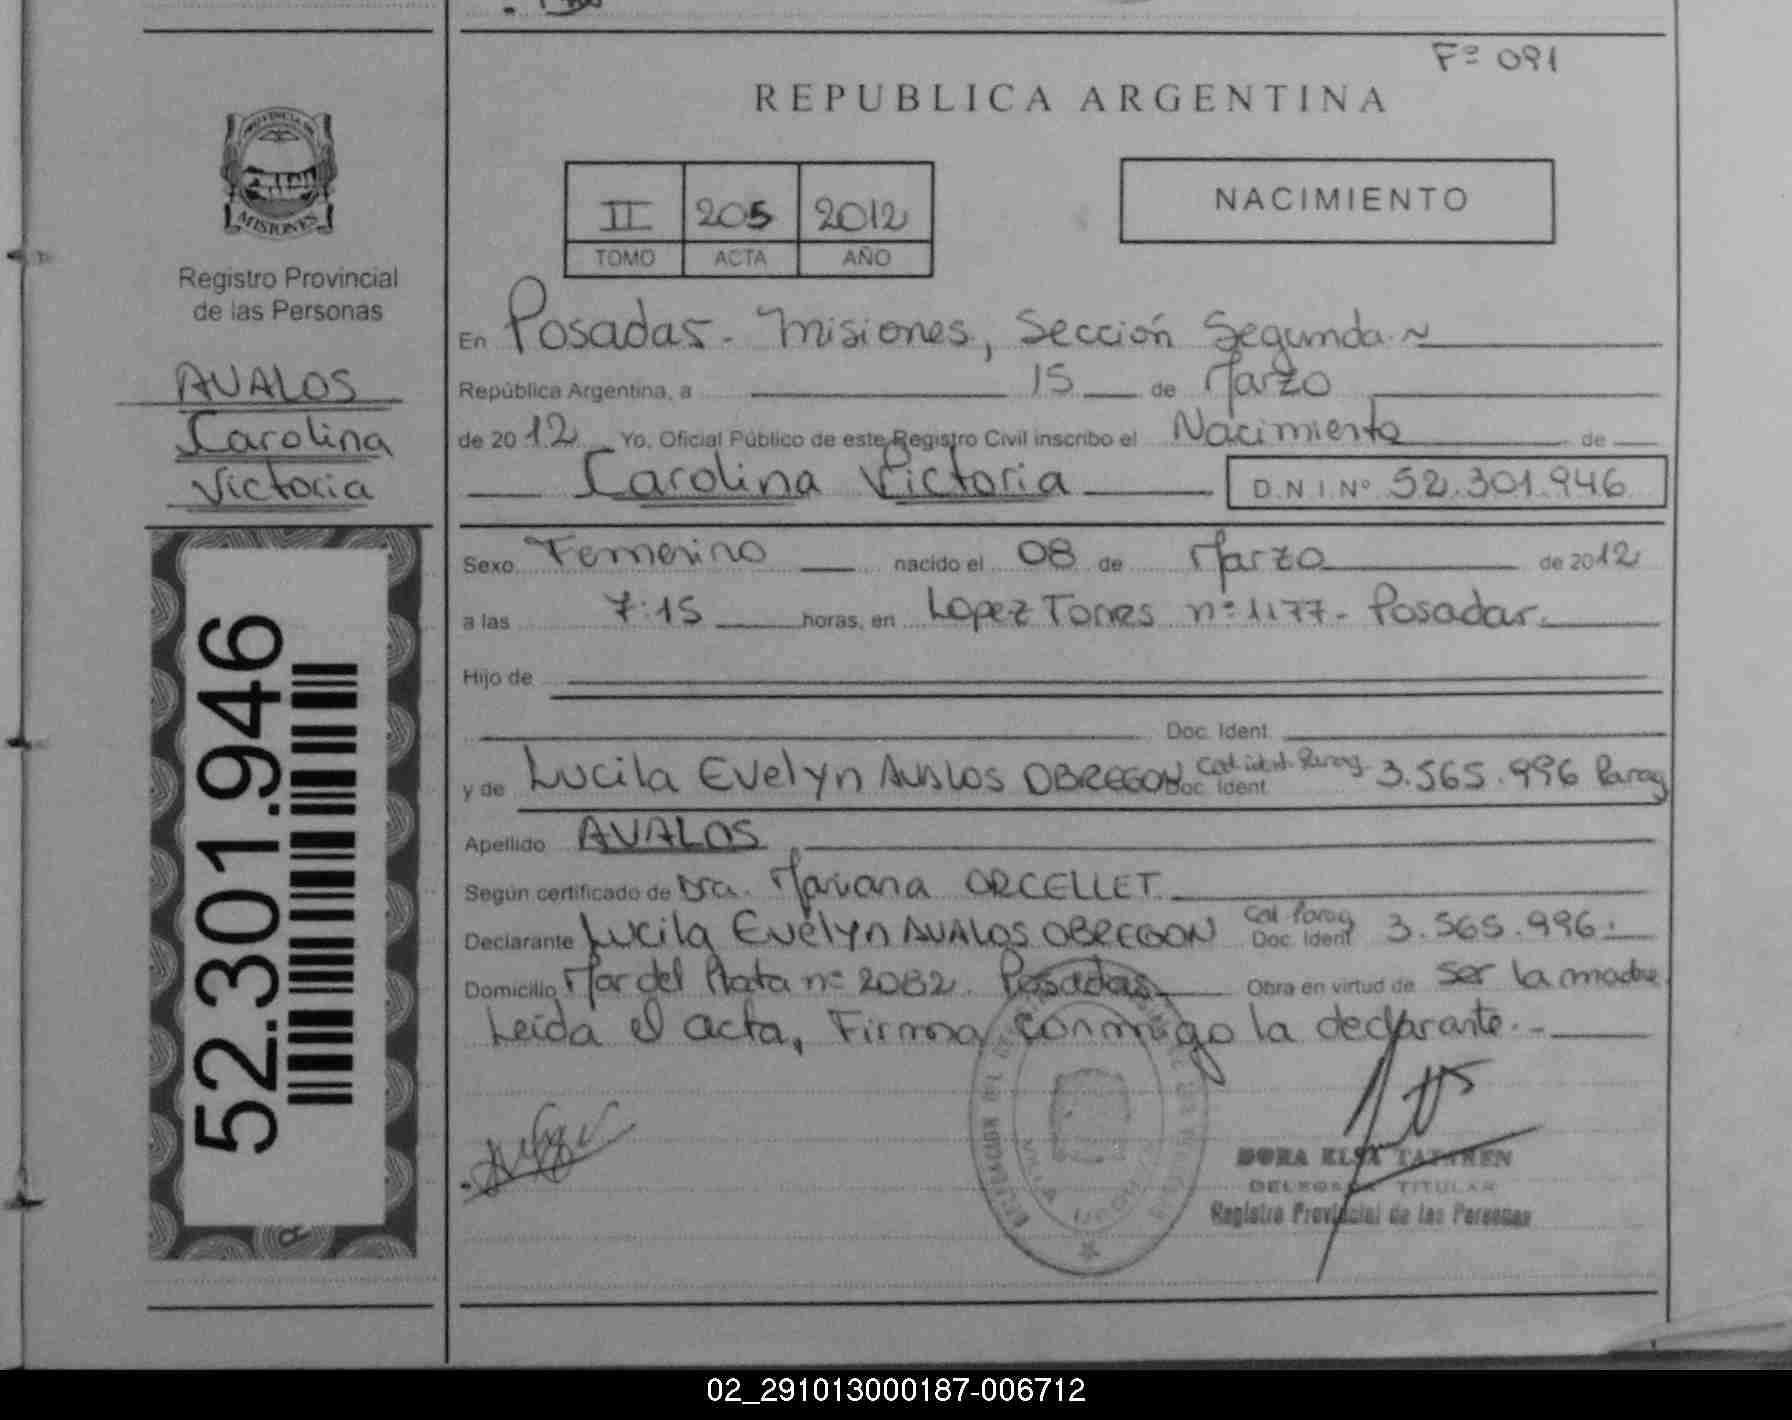 Fº 091
REPUBLICA ARGENTINA
PROVINCIA DE
MISIONES
Registro Provincial
de las Personas
AVALOS
Carolina
Victoria
52.301.946
II 205 2012
TOMO ACTA AÑO
NACIMIENTO
En Posadas - Misiones, Sección Segunda.~
República Argentina, a 15 de Marzo
de 2012 Yo, Oficial Público de este Registro Civil inscribo el Nacimiento de
Carolina Victoria D.N.I. Nº 52.301.946
Sexo Femenino nacido el 08 de Marzo de 2012
a las 7:15 horas, en Lopez Torres nº 1177 - Posadas.
Hijo de
Doc. Ident.
y de Lucila Evelyn AVALOS OBREGON Doc. Ident. Ced. ident. Parag. 3.565.996 Parag
Apellido AVALOS
Según certificado de Dra. Mariana ORCELLET
Declarante Lucila Evelyn AVALOS OBREGON Ced. Parag Doc. Ident 3.565.996.
Domicilio Mar del Plata nº 2082. Posadas Obra en virtud de ser la madre.
Leída el acta, Firma conmigo la declarante. -
DORA ELSA
DELEGADA TITULAR
Registro Provincial de las Personas
02_291013000187-006712